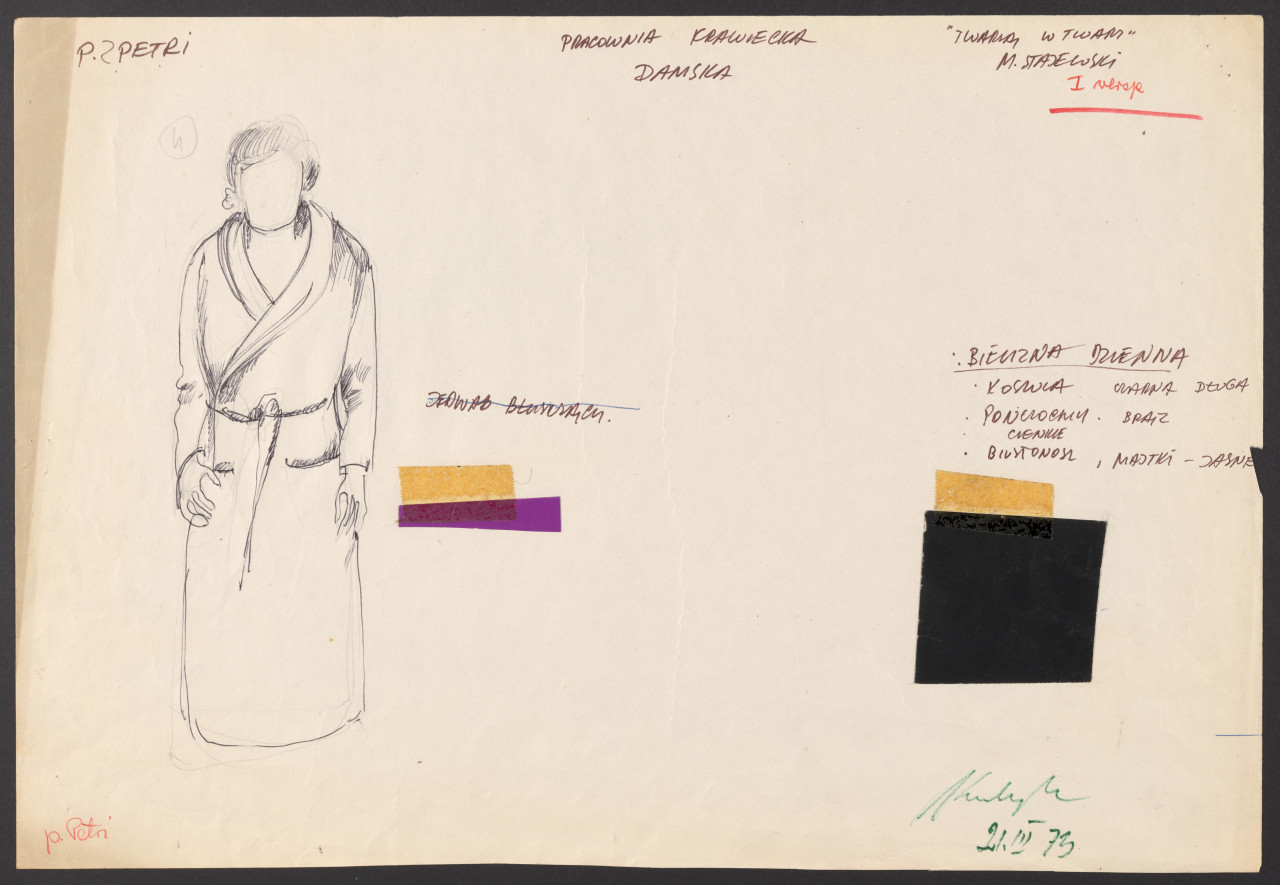 P. Z PETRI
PRACOWNIA KRAWIECKA
DAMSKA
"TWARZĄ W TWARZ"
M. STAJEWSKI
I wersja
JEDWAB BŁYSZCZĄCY.
· BIELIZNA DZIENNA
· KOSZULA CZARNA DŁUGA
· POŃCZOCHY · BRĄZ
· CIENKIE
· BIUSTONOSZ , MAJTKI – JASNE
p. Petri
21.III 73